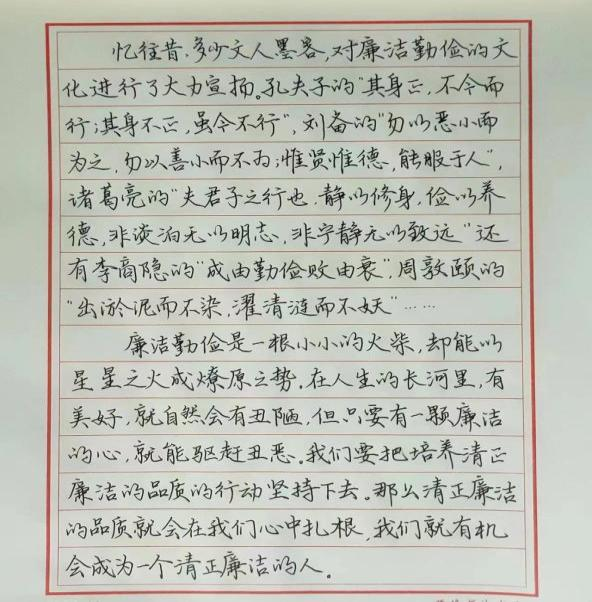 忆往昔,多少文人墨客,对廉洁勤俭的文
化进行了大力宣扬。孔夫子的"其身正,不令而
行;其身不正,虽令不行",刘备的"勿以恶小而
为之,勿以善小而不为;惟贤惟德,能服于人",
诸葛亮的"夫君子之行也,静以修身,俭以养
德,非淡泊无以明志,非宁静无以致远"还
有李商隐的"成由勤俭败由衰",周敦颐的
"出淤泥而不染,濯清涟而不妖"……
廉洁勤俭是一根小小的火柴,却能以
星星之火成燎原之势。在人生的长河里,有
美好,就自然会有丑陋,但只要有一颗廉洁
的心,就能驱赶丑恶。我们要把培养清正
廉洁的品质的行动坚持下去。那么清正廉洁
的品质就会在我们心中扎根,我们就有机
会成为一个清正廉洁的人。